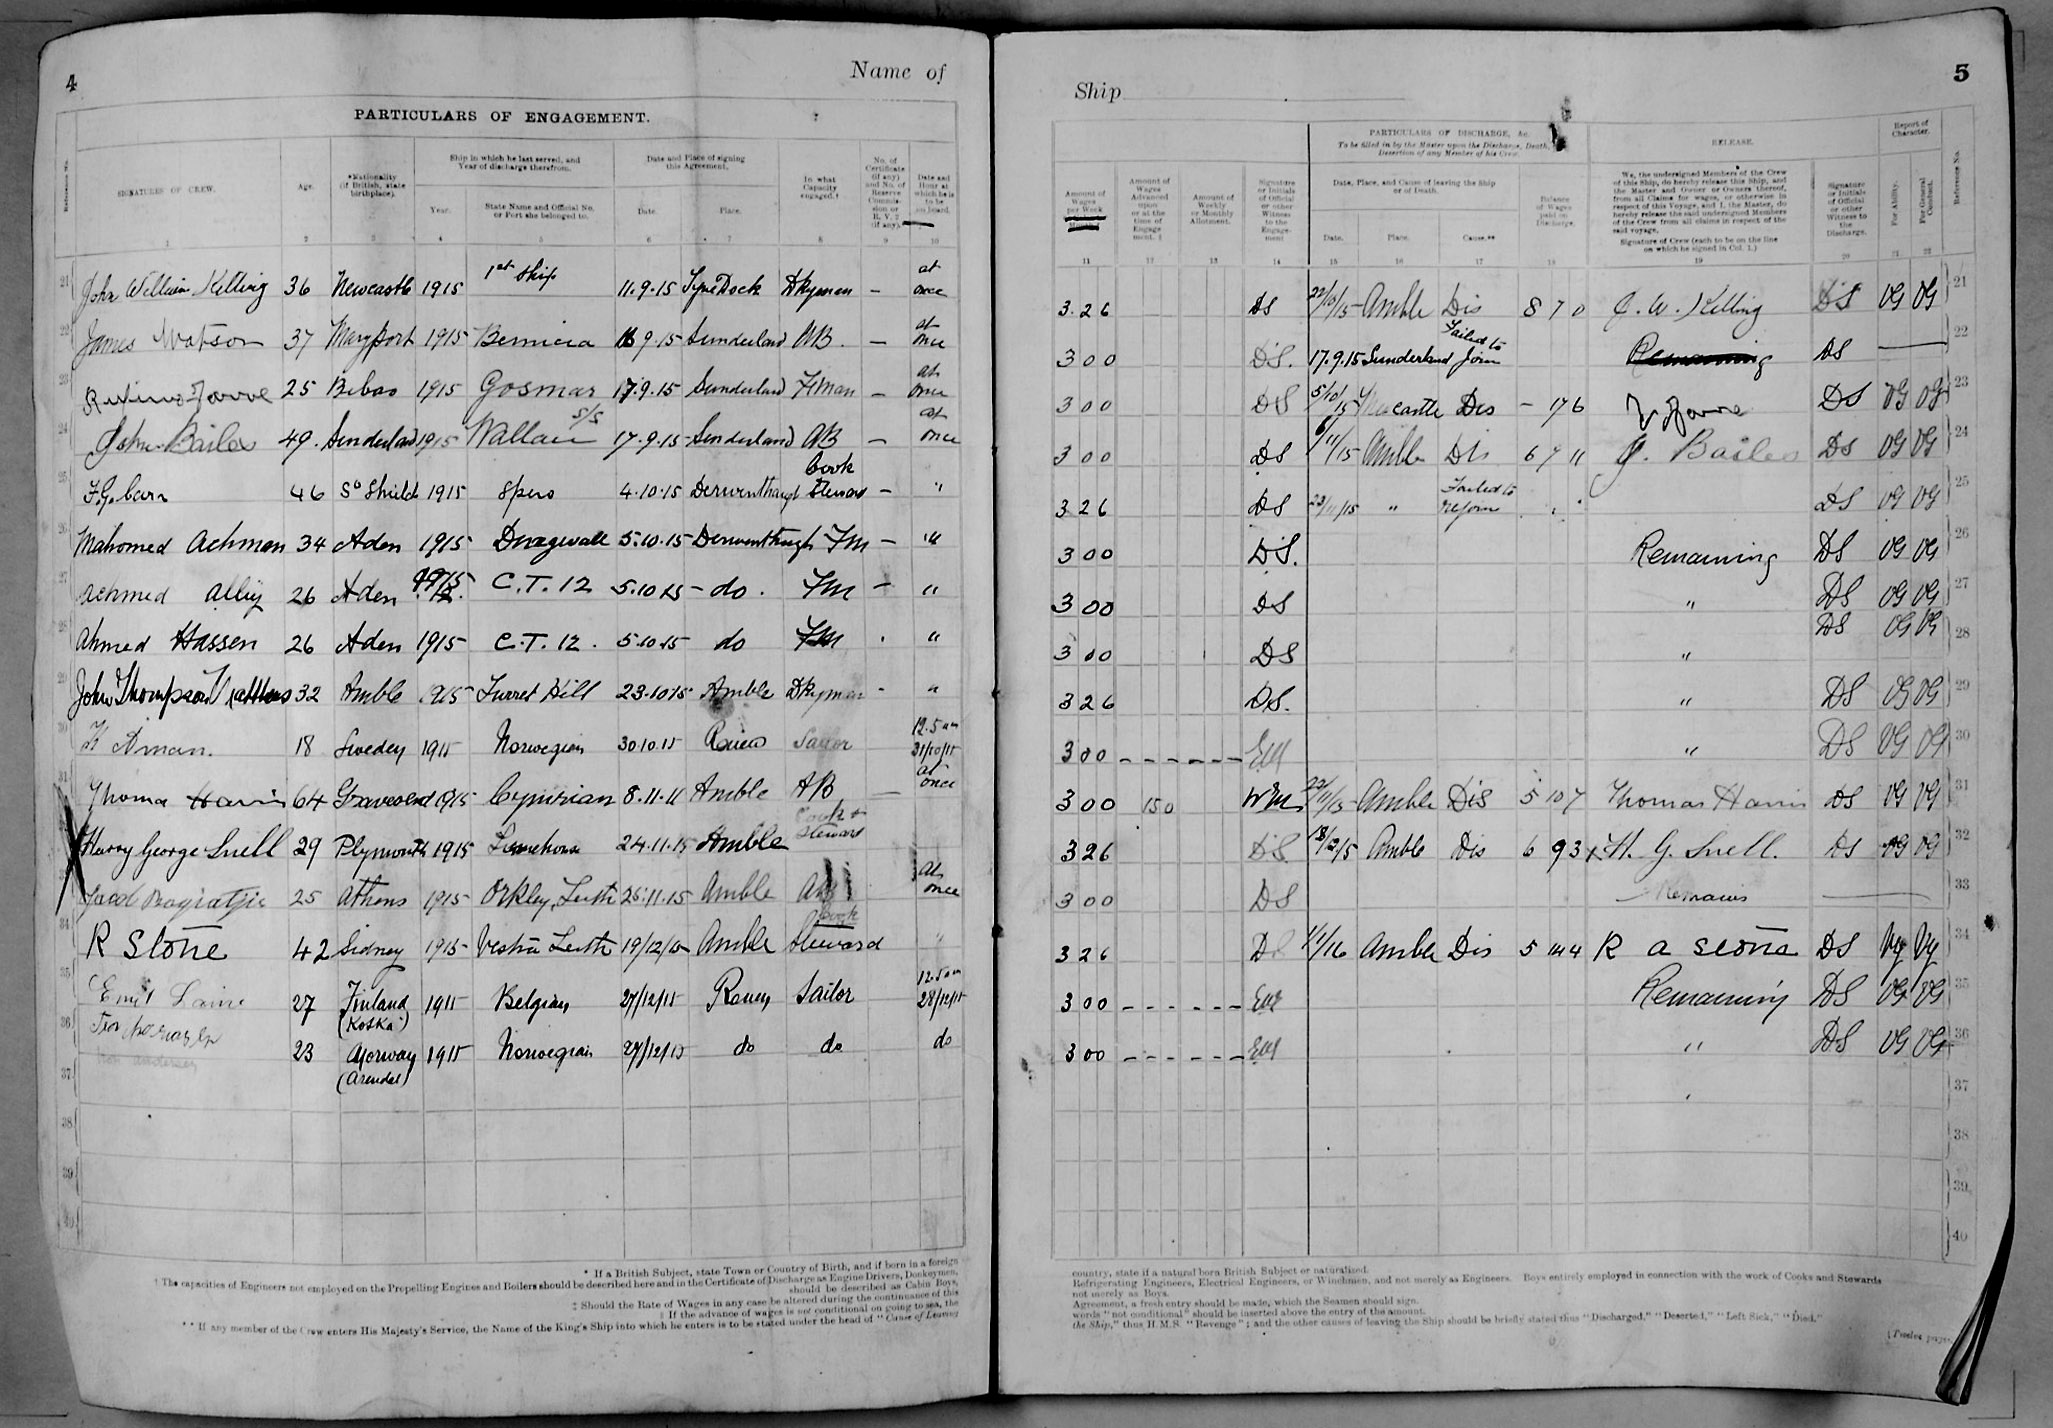 4
Name of
PARTICULARS OF ENGAGEMENT.
Reference No.
SIGNATURES OF CREW.
Age.
*Nationality (if British, state birthplace).
Ship in which he last served, and Year of discharge therefrom.
Year.
State Name and Official No. or Port she belonged to.
Date and Place of signing this Agreement.
Date.
Place.
In what Capacity engaged.†
No. of Certificate (if any) and No. of Reserve Commission or R.V.2 (if any).
Date and Hour at which he is to be on board.
1 2 3 4 5 6 7 8 9 10
21 John William Kelling 36 Newcastle 1915 1st Ship 11.9.15 Tyne Dock Dkyman — at once
22 James Watson 37 Maryport 1915 Bernicia 16 9.15 Sunderland AB. — at once
23 25 Bilbao 1915 Gosmar 17.9.15 Sunderland F'man — at once
24 John Bailes 49. Sunderland 1915 Wallace S/S 17.9.15 Sunderland AB — at once
F.G. Carr 46 So Shields 1915 Spero 4.10.15 Derwenthaugh Cook Steward — "
26 Mahomed Achman 34 Aden 1915 5.10.15 Derwenthaugh Fm — "
27 Achmed Alley 26 Aden 1915 C.T. 12 5.10.15 — do. Fm — "
28 Ahmed Hassen 26 Aden 1915 C.T. 12. 5.10.15 do Fm "
29 John Thompson Matthews 32 Amble 1915 Turret Hill 23.10.15 Amble Dkyman - "
30 Aman. 18 Sweden 1915 Norwegian 30.10.15 Rouen Sailor 12.5 am 31/10/15
31 Thomas Harris 64 Gravesend 1915 Cymrian 8.11.11 Amble AB — at once
Harry George Snell 29 Plymouth 1915 Limehouse 24.11.15 Amble Cook & Steward
25 Athens 1915 Orkley, Leith 25.11.15 Amble AB at once
34 R Stone 42 Sidney 1915 Vestra Leith 19/12/15 Amble Cook Steward "
35 Emil Laine 27 Finland (Kotka) 1915 Belgian 27/12/15 Rouen Sailor 12.5 am 28/12/15
36 23 Norway (Arendal) 1915 Norwegian 27/12/15 do do do
37
38
39
40
* If a British Subject, state Town or Country of Birth, and if born in a foreign
† The capacities of Engineers not employed on the Propelling Engines and Boilers should be described here and in the Certificate of Discharge as Engine Drivers, Donkeymen,
should be described as Cabin Boys,
‡ Should the Rate of Wages in any case be altered during the continuance of this
§ If the advance of wages is not conditional on going to sea, the
** If any member of the Crew enters His Majesty's Service, the Name of the King's Ship into which he enters is to be stated under the head of "Cause of Leaving
Ship
5
PARTICULARS OF DISCHARGE, &c.
To be filled in by the Master upon the Discharge, Death, Desertion of any Member of his Crew.
RELEASE.
Report of Character.
Amount of Wages per Week
Amount of Wages Advanced upon or at the time of Engagement. §
Amount of Weekly or Monthly Allotment.
Signature or Initials of Official or other Witness to the Engagement
Date, Place, and Cause of leaving the Ship or of Death.
Date. Place. Cause.**
Balance of Wages paid on Discharge.
We, the undersigned Members of the Crew of this Ship, do hereby release this Ship, and the Master and Owner or Owners thereof, from all Claims for wages, or otherwise in respect of this Voyage, and I, the Master, do hereby release the said undersigned Members of the Crew from all claims in respect of the said voyage.
Signature of Crew (each to be on the line on which he signed in Col. 1.)
Signature or Initials of Official or other Witness to the Discharge.
For Ability.
For General Conduct.
Reference No.
11 12 13 14 15 16 17 18 19 20 21 22
3.2 6 DS 22/10/15 Amble Dis 8 7 0 J. W. Kelling DS VG VG 21
3 0 0 DS. 17.9.15 Sunderland Failed to Join Remaining DS — 22
3 0 0 DS 5/10/15 Newcastle Dis — 17 6 DS VG VG 23
3 0 0 DS 6/11/15 Amble Dis 6 7 11 J. Bailes DS VG VG 24
3 2 6 DS 23/11/15 " Failed to rejoin DS VG VG 25
3 0 0 DS. Remaining DS VG VG 26
3 0 0 DS " DS VG VG 27
3 0 0 DS " DS VG VG 28
3 2 6 DS. " DS VG VG 29
3 0 0 " DS VG VG 30
3 0 0 1 5 0 22/11/15 Amble Dis 5 10 7 Thomas Harris DS VG VG 31
3 2 6 DS 18/12/15 Amble Dis 6 9 3 x H. G. Snell. DS VG VG 32
3 0 0 DS Remains — 33
3 2 6 DS 1/1/16 Amble Dis 5 14 4 R A Stone DS Vg Vg 34
3 0 0 Remaining DS VG VG 35
3 0 0 " DS VG VG 36
37
38
39
40
country, state if a natural born British Subject or naturalized.
Refrigerating Engineers, Electrical Engineers, or Winchmen, and not merely as Engineers. Boys entirely employed in connection with the work of Cooks and Stewards
not merely as Boys.
Agreement, a fresh entry should be made, which the Seamen should sign.
words "not conditional" should be inserted above the entry of the amount.
the Ship," thus H.M.S. "Revenge"; and the other causes of leaving the Ship should be briefly stated thus "Discharged," "Deserted," "Left Sick," "Died."
(Twelve pages